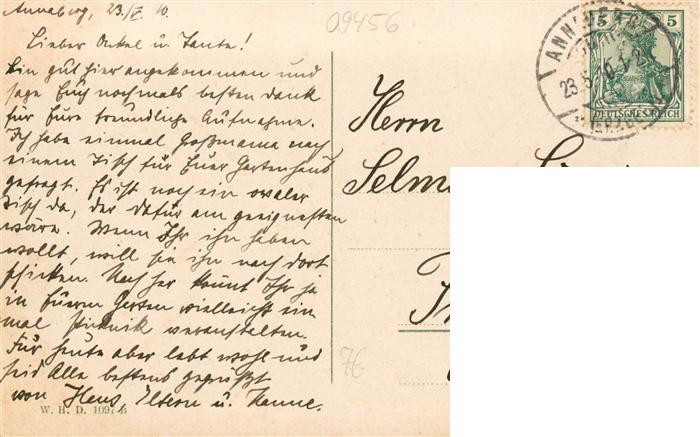 Annaberg, 23./V. 10.
09456
Lieber Onkel u. Tante!
Bin gut hier angekommen und
sage Euch nochmals besten Dank
für Eure freundliche Aufnahme.
Ich habe einmal Großmama nach
einem Tisch für Euer Gartenhaus
gefragt. Es ist noch ein ovaler
Tisch da, der dafür am geeignesten
wäre. Wenn Ihr ihn haben
wollt, will sie ihn nach dort
schicken. Nachher könnt Ihr ja
in Eurem Garten vielleicht ein
mal Picknik veranstalten.
Für heute aber lebt wohl und
seid Alle bestens gegrüßt
von Hans, Eltern u. Hanne.
W. H. D. 1097 B
Herrn
Selm
7€
5 5
DEUTSCHES REICH
ANNABERG
23.5.10.